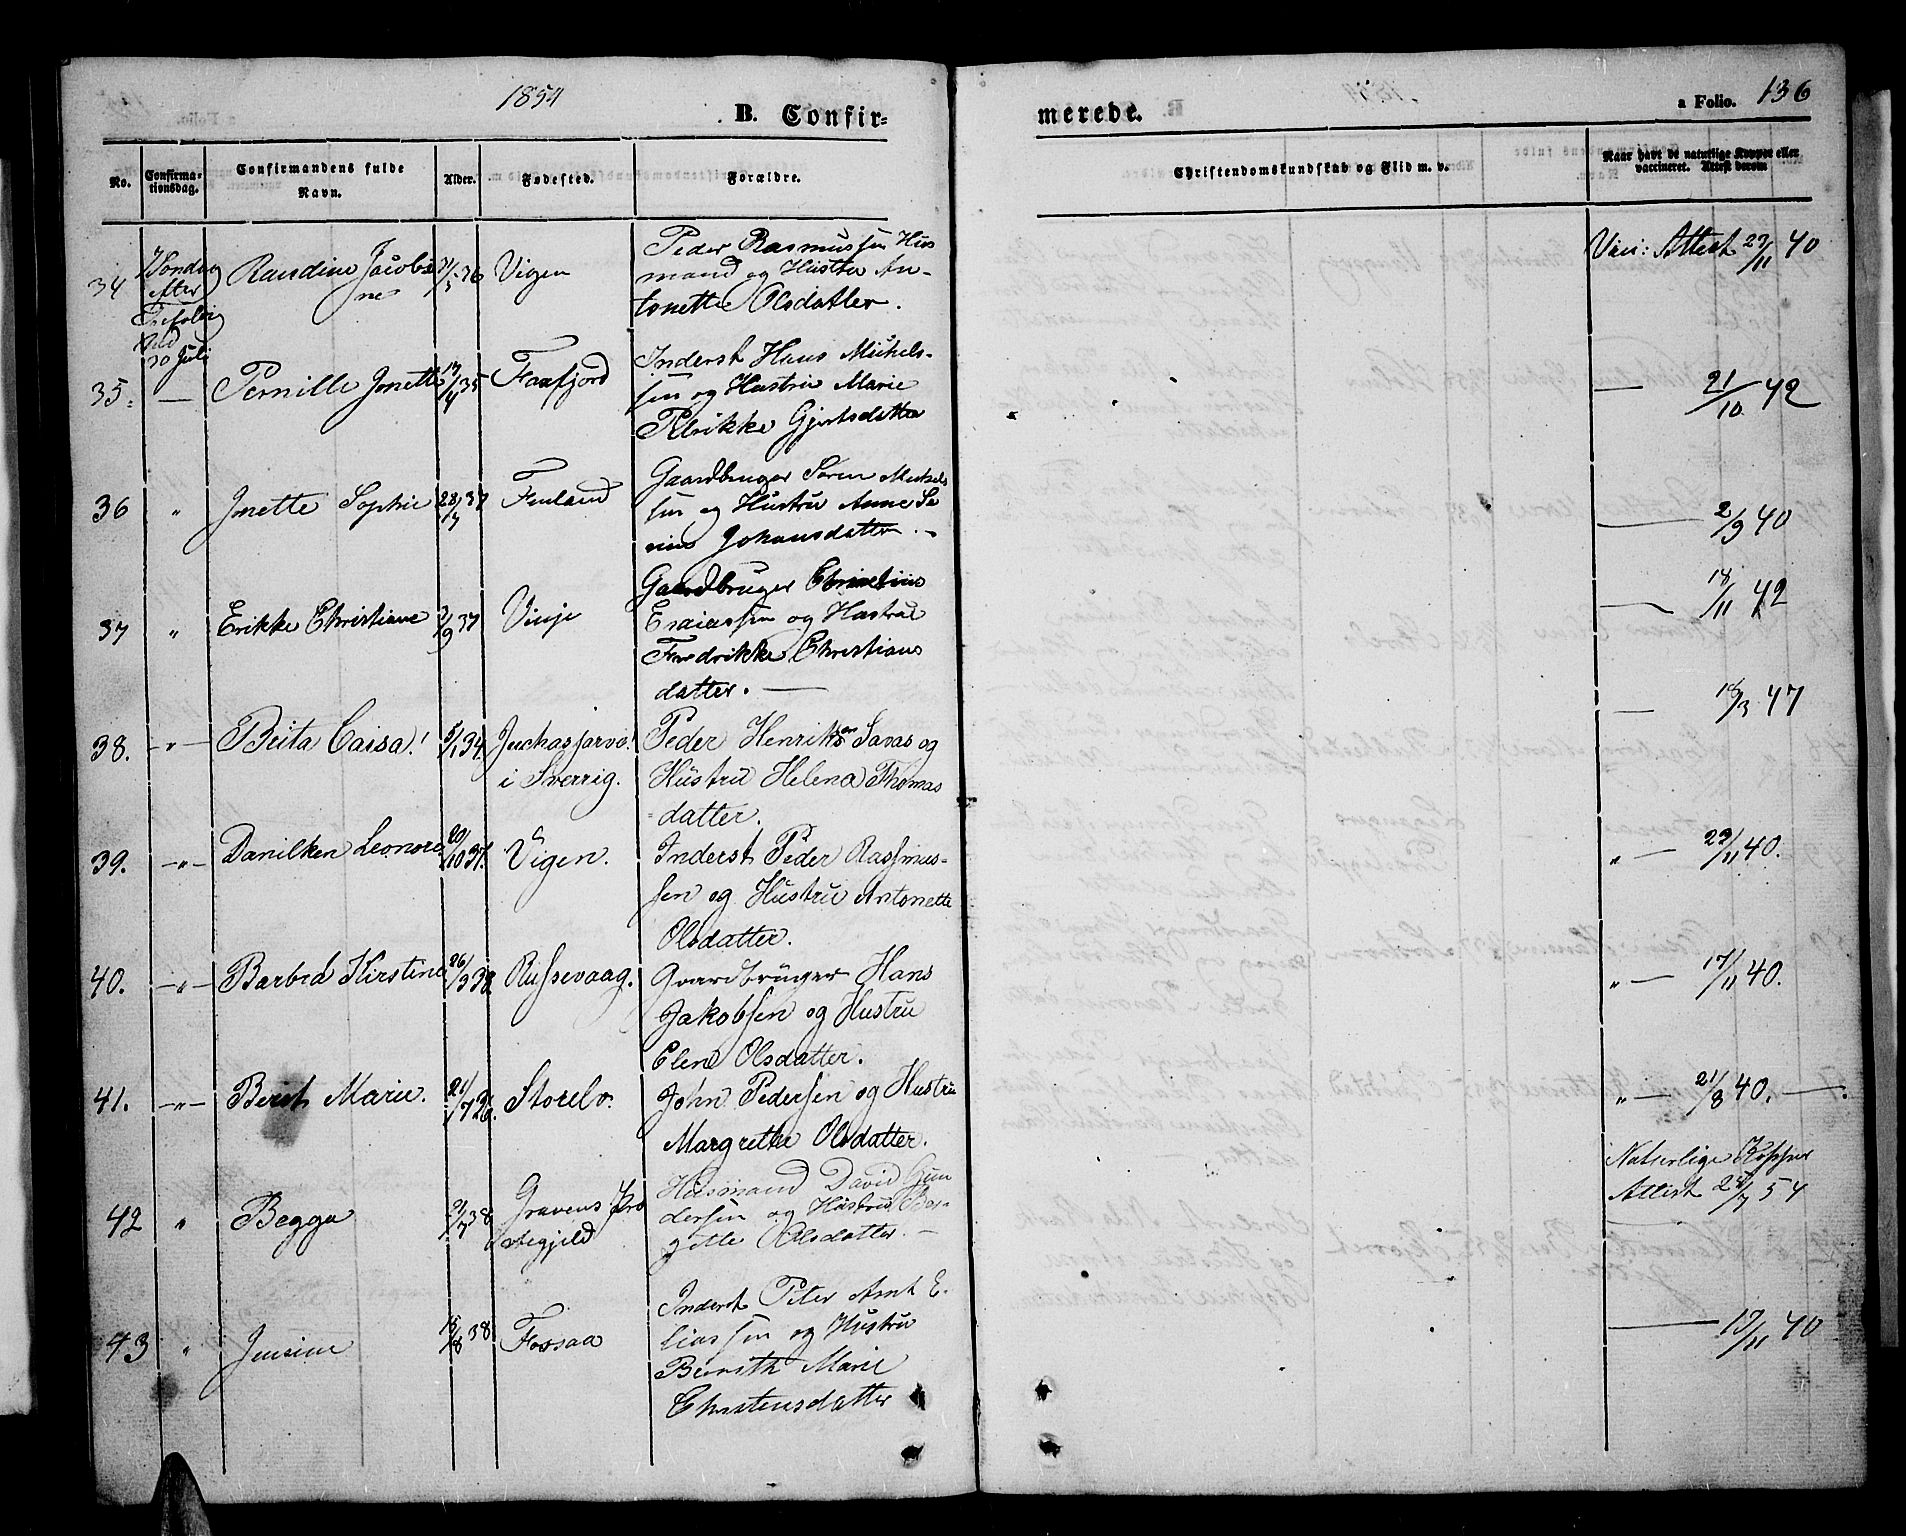 1854
B. Confir-
merede.
a Folio. 136
No.
Confirma-
tionsdag.
Confirmandens fulde
Navn.
Alder.
Fødested.
Forældre.
Christendomskundskab og Flid m. v.
Naar havt de naturlige Kopper eller
vaccineret. Attest derom
34
Søndag
efter
30 Juli
Randine Jacobi
ne
Vigen
Peder Rasmussen Hus
mand og Hustru An-
tonette Olsdatter.
Vac: Attest 23/11 40
35.
—
Pernille Jonette
14/4 35
Foxfjord
Inderst Hans Michels-
sen og Hustru Marie
Ulrikke Gjertsdatter
— 21/10 42
36
"
Jonette Sophie
28/7 37
Finland
Gaardbruger Søren Michels
sen og Hustru Anne Se
rine Johansdatter.
— 2/9 40
37
"
Erikke Christiane
3/9 37
Vinje
Gaardbruger Christian
Esaiassen og Hustrue
Fredrikke Christians
datter. —
— 18/11 42
38.
—"—
Brita Caisa!
5/1 34.
Juckasjarvi!
i Sverrig.
Peder Henriksen Savas og
Hustru Helena Thomas
datter.
— 18/3 47
39.
—"—
Danilken Leonore
20/10 37.
Vigen.
Inderst Peder Rassmus-
sen og Hustru Antonette
Olsdatter.
" — 23/11 40.
40.
—"—
Barbro Kirstine
26/9 38.
Russevaag.
Gaardbruger Hans
Jakobsen og Hustru
Elen Olsdatter.
" — 17/11 40.
41.
—"—
Berit Marie.
Storelv.
John Pedersen og Hustru
Margrethe Olsdatter.
" — 21/8 40. —.
42
"
Begga
Gravens Præ
stegjeld
Husmand David Gun
dersen og Hustru Ber-
gitte Olsdatter. —
Naturlige Kopper
Attest 24/7 54
43
"
Jensine
15/8 38
Foxsaa
Inderst Peter Arnt E-
liassen og Hustru
Bereth Marie
Christensdatter
— 17/11 40